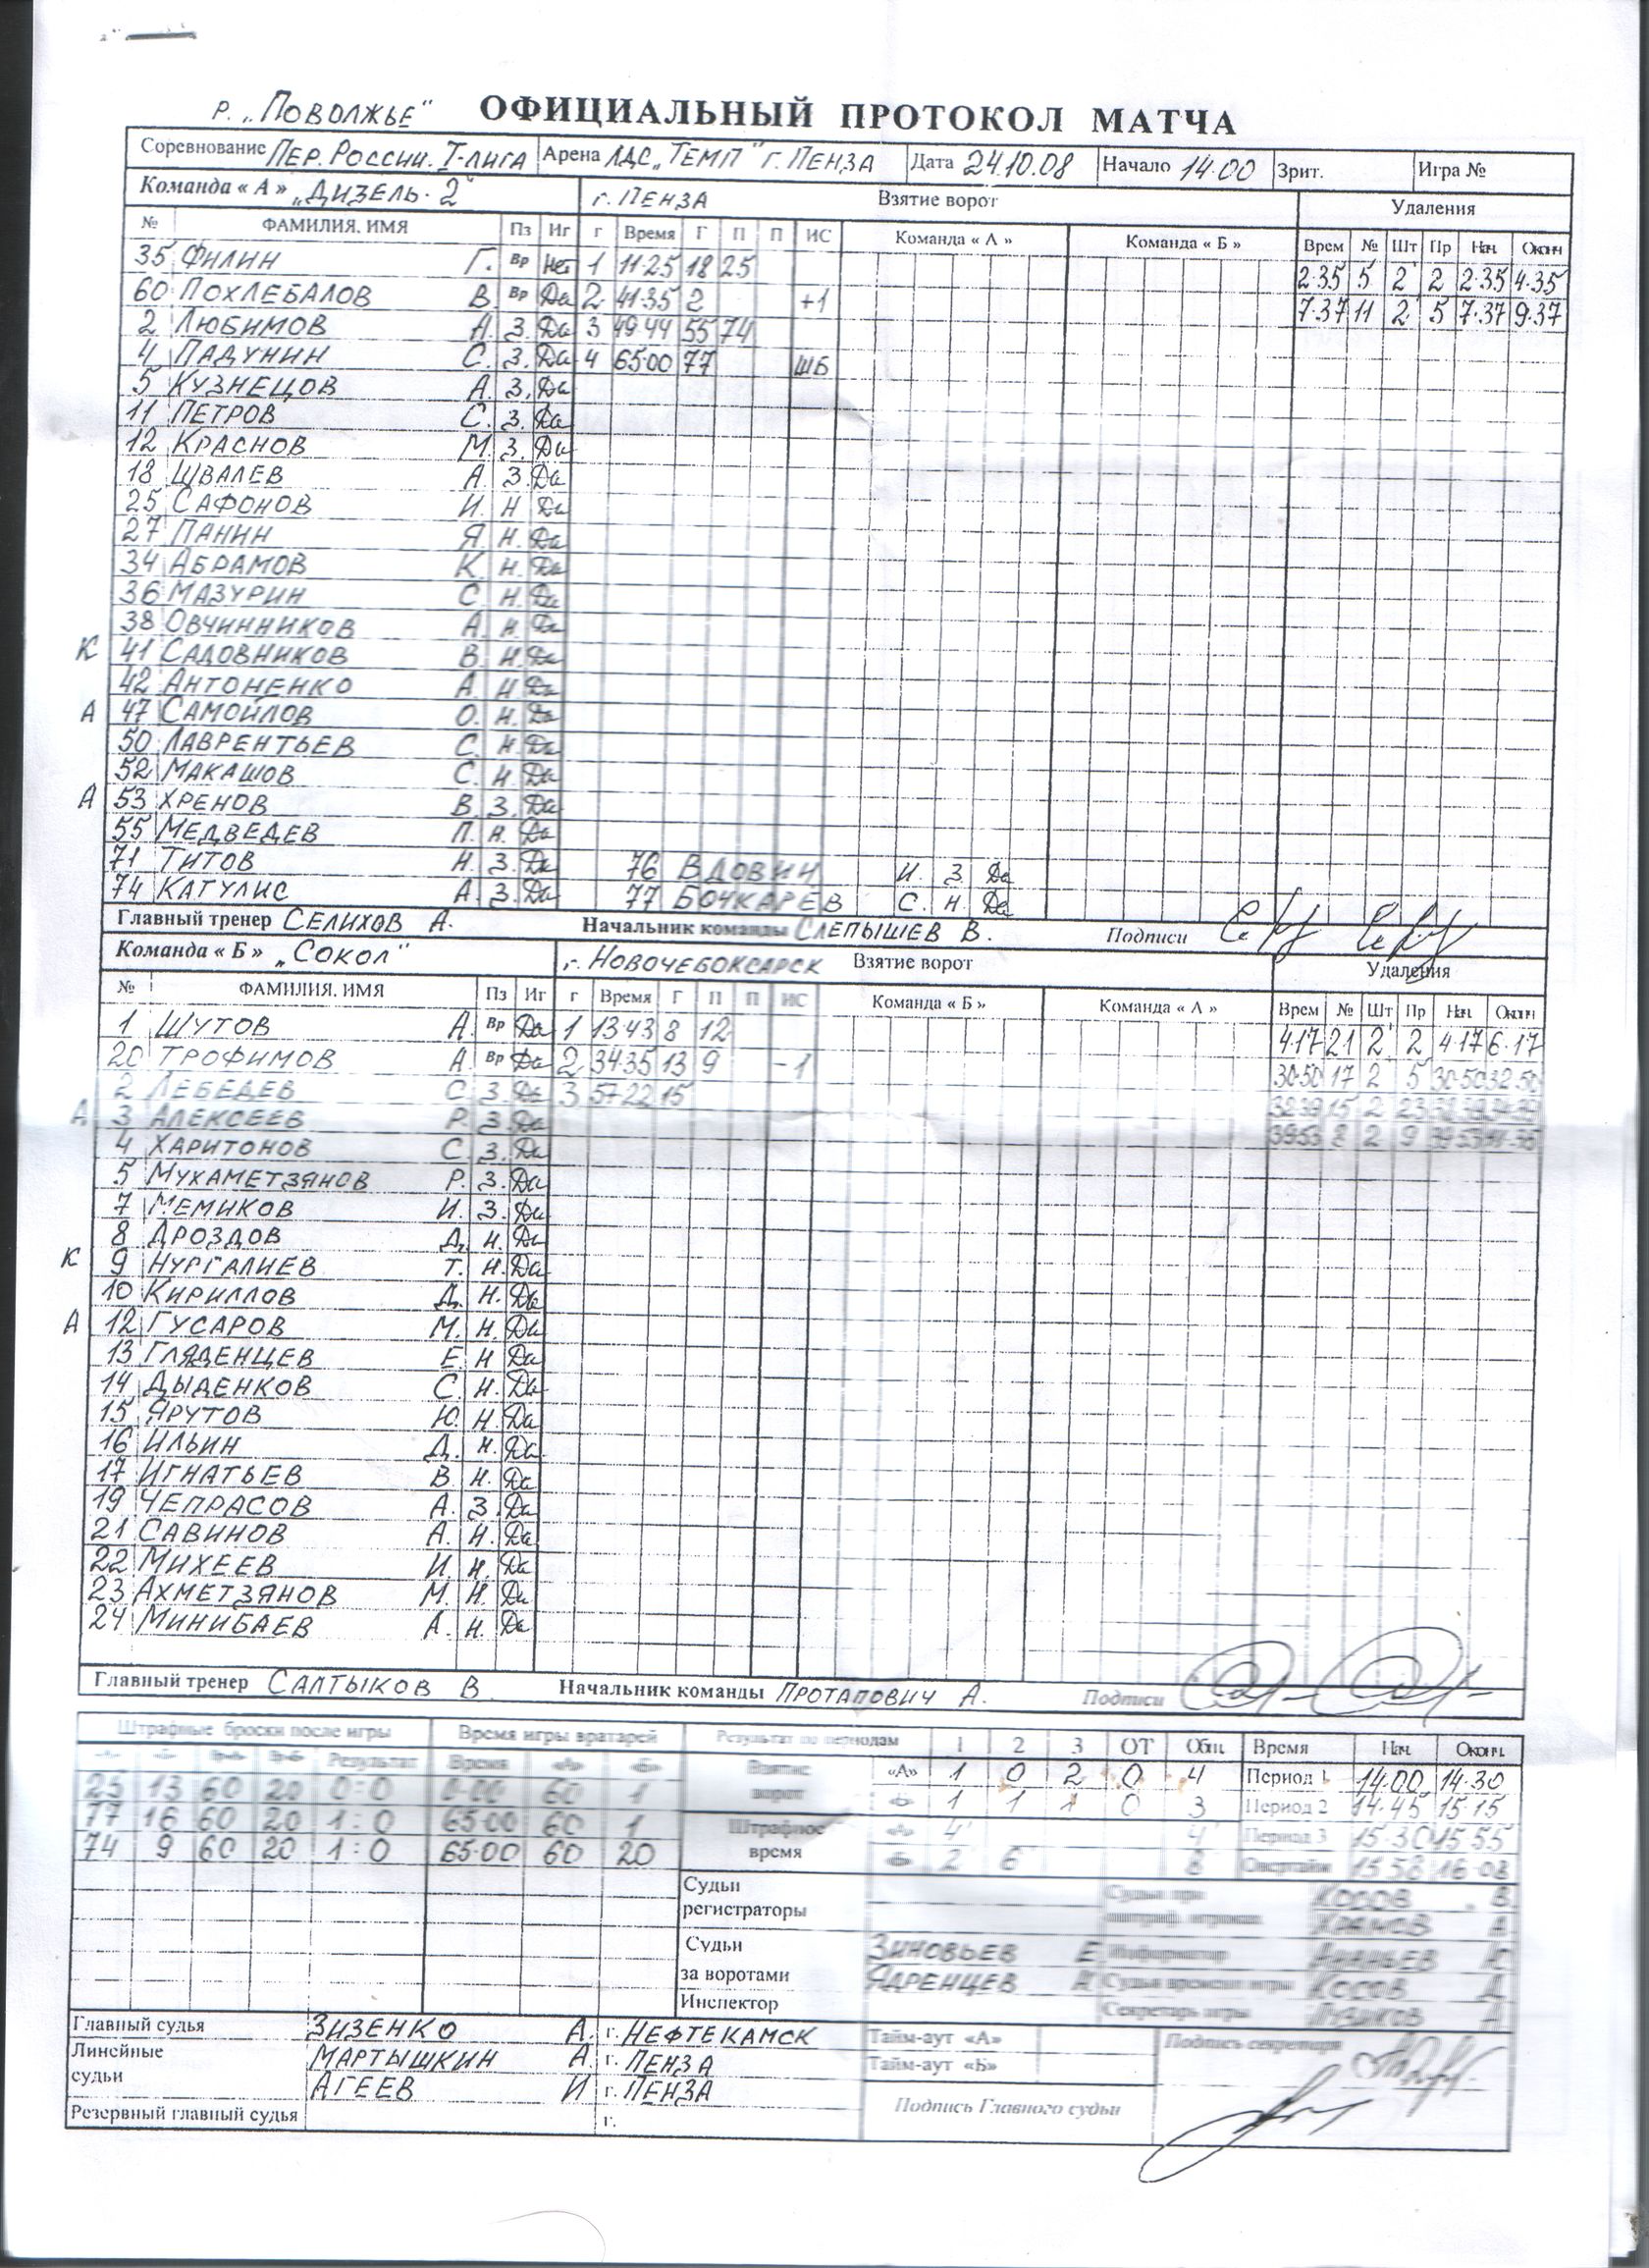 р. „Поволжье" ОФИЦИАЛЬНЫЙ ПРОТОКОЛ МАТЧА
Соревнование Пер. России. I-лига Арена ЛДС „Темп" г. Пенза Дата 24.10.08 Начало 14.00 Зрит. Игра №
Команда « А » „Дизель-2" г. Пенза Взятие ворот Удаления
№ ФАМИЛИЯ, ИМЯ Пз Иг г Время Г П П ИС Команда « А » Команда « Б » Врем № Шт Пр Нач. Оконч
35 Филин Г. Вр Нет 1 11.25 18 25 2.35 5 2' 2 2.35 4.35
60 Похлебалов В. Вр Да 2 41.35 2 +1 7.37 11 2' 5 7.37 9.37
2 Любимов А. З. Да 3 49.44 55 74
4 Падунин С. З. Да 4 65.00 77 ШБ
5 Кузнецов А. З. Да
11 Петров С. З. Да
12 Краснов М. З. Да
18 Швалев А. З. Да
25 Сафонов И. Н Да
27 Панин Я Н. Да
34 Абрамов К. Н. Да
36 Мазурин С. Н. Да
38 Овчинников А. Н. Да
К 41 Садовников В. Н. Да
42 Антоненко А. Н Да
А 47 Самойлов О. Н. Да
50 Лаврентьев С. Н. Да
52 Макашов С. Н. Да
А 53 Хренов В. З. Да
55 Медведев П. Н. Да
71 Титов Н. З. Да 76 Вдовин И. З. Да
74 Катулис А. З. Да 77 Бочкарев С. Н. Да
Главный тренер Селихов А. Начальник команды Слепышев В. Подписи
Команда « Б » „Сокол" г. Новочебоксарск Взятие ворот Удаления
№ ФАМИЛИЯ, ИМЯ Пз Иг г Время Г П П ИС Команда « Б » Команда « А » Врем № Шт Пр Нач. Оконч
1 Шутов А. Вр Да 1 13.43 8 12 4.17 21 2' 2 4.17 6.17
20 Трофимов А. Вр Да 2 34.35 13 9 -1 30.50 17 2' 5 30.50 32.50
2 Лебедев С. З. Да 3 57.22 15 32.39 15 2 23 32.39 34.39
А 3 Алексеев Р. З. Да 39.53 8 2 9 39.53
4 Харитонов С. З. Да
5 Мухаметзянов Р. З. Да
7 Мемиков И. З. Да
8 Дроздов Д. Н. Да
К 9 Нургалиев Т. Н. Да
10 Кириллов Д. Н. Да
А 12 Гусаров М. Н. Да
13 Гляденцев Е. Н Да
14 Дыденков С. Н. Да
15 Ярутов Ю. Н. Да
16 Ильин Д. Н. Да
17 Игнатьев В. Н. Да
19 Чепрасов А. З. Да
21 Савинов А. Н. Да
22 Михеев И. Н. Да
23 Ахметзянов М. Н. Да
24 Минибаев А. Н. Да
Главный тренер Салтыков В. Начальник команды Протапович А. Подписи
Штрафные броски после игры Время игры вратарей Результат по периодам 1 2 3 ОТ Общ Время Нач. Оконч.
«А» «Б» Вр«А» Вр«Б» Результат Время «А» «Б» Взятие ворот «А» 1 0 2 0 4 Период 1 14.00 14.30
25 13 60 20 0:0 0.00 60 1 «Б» 1 1 1 0 3 Период 2 14.45 15.15
77 16 60 20 1:0 65.00 60 1 Штрафное время «А» 4' 4' Период 3 15.30 15.55
74 9 60 20 1:0 65.00 60 20 «Б» 2 6 8 Овертайм 15.58 16.08
Судьи регистраторы Судьи при штраф. игроках Косов В.
А.
Судьи за воротами Зиновьев Е. Информатор Ананьев Ю
Ядренцев А. Судья времени игры Косов Д
Инспектор Секретарь игры А
Главный судья Зизенко А. г. Нефтекамск Тайм-аут «А» Подпись секретаря
Линейные судьи Мартышкин А. г. Пенза Тайм-аут «Б»
Агеев И г. Пенза Подпись Главного судьи
Резервный главный судья г.